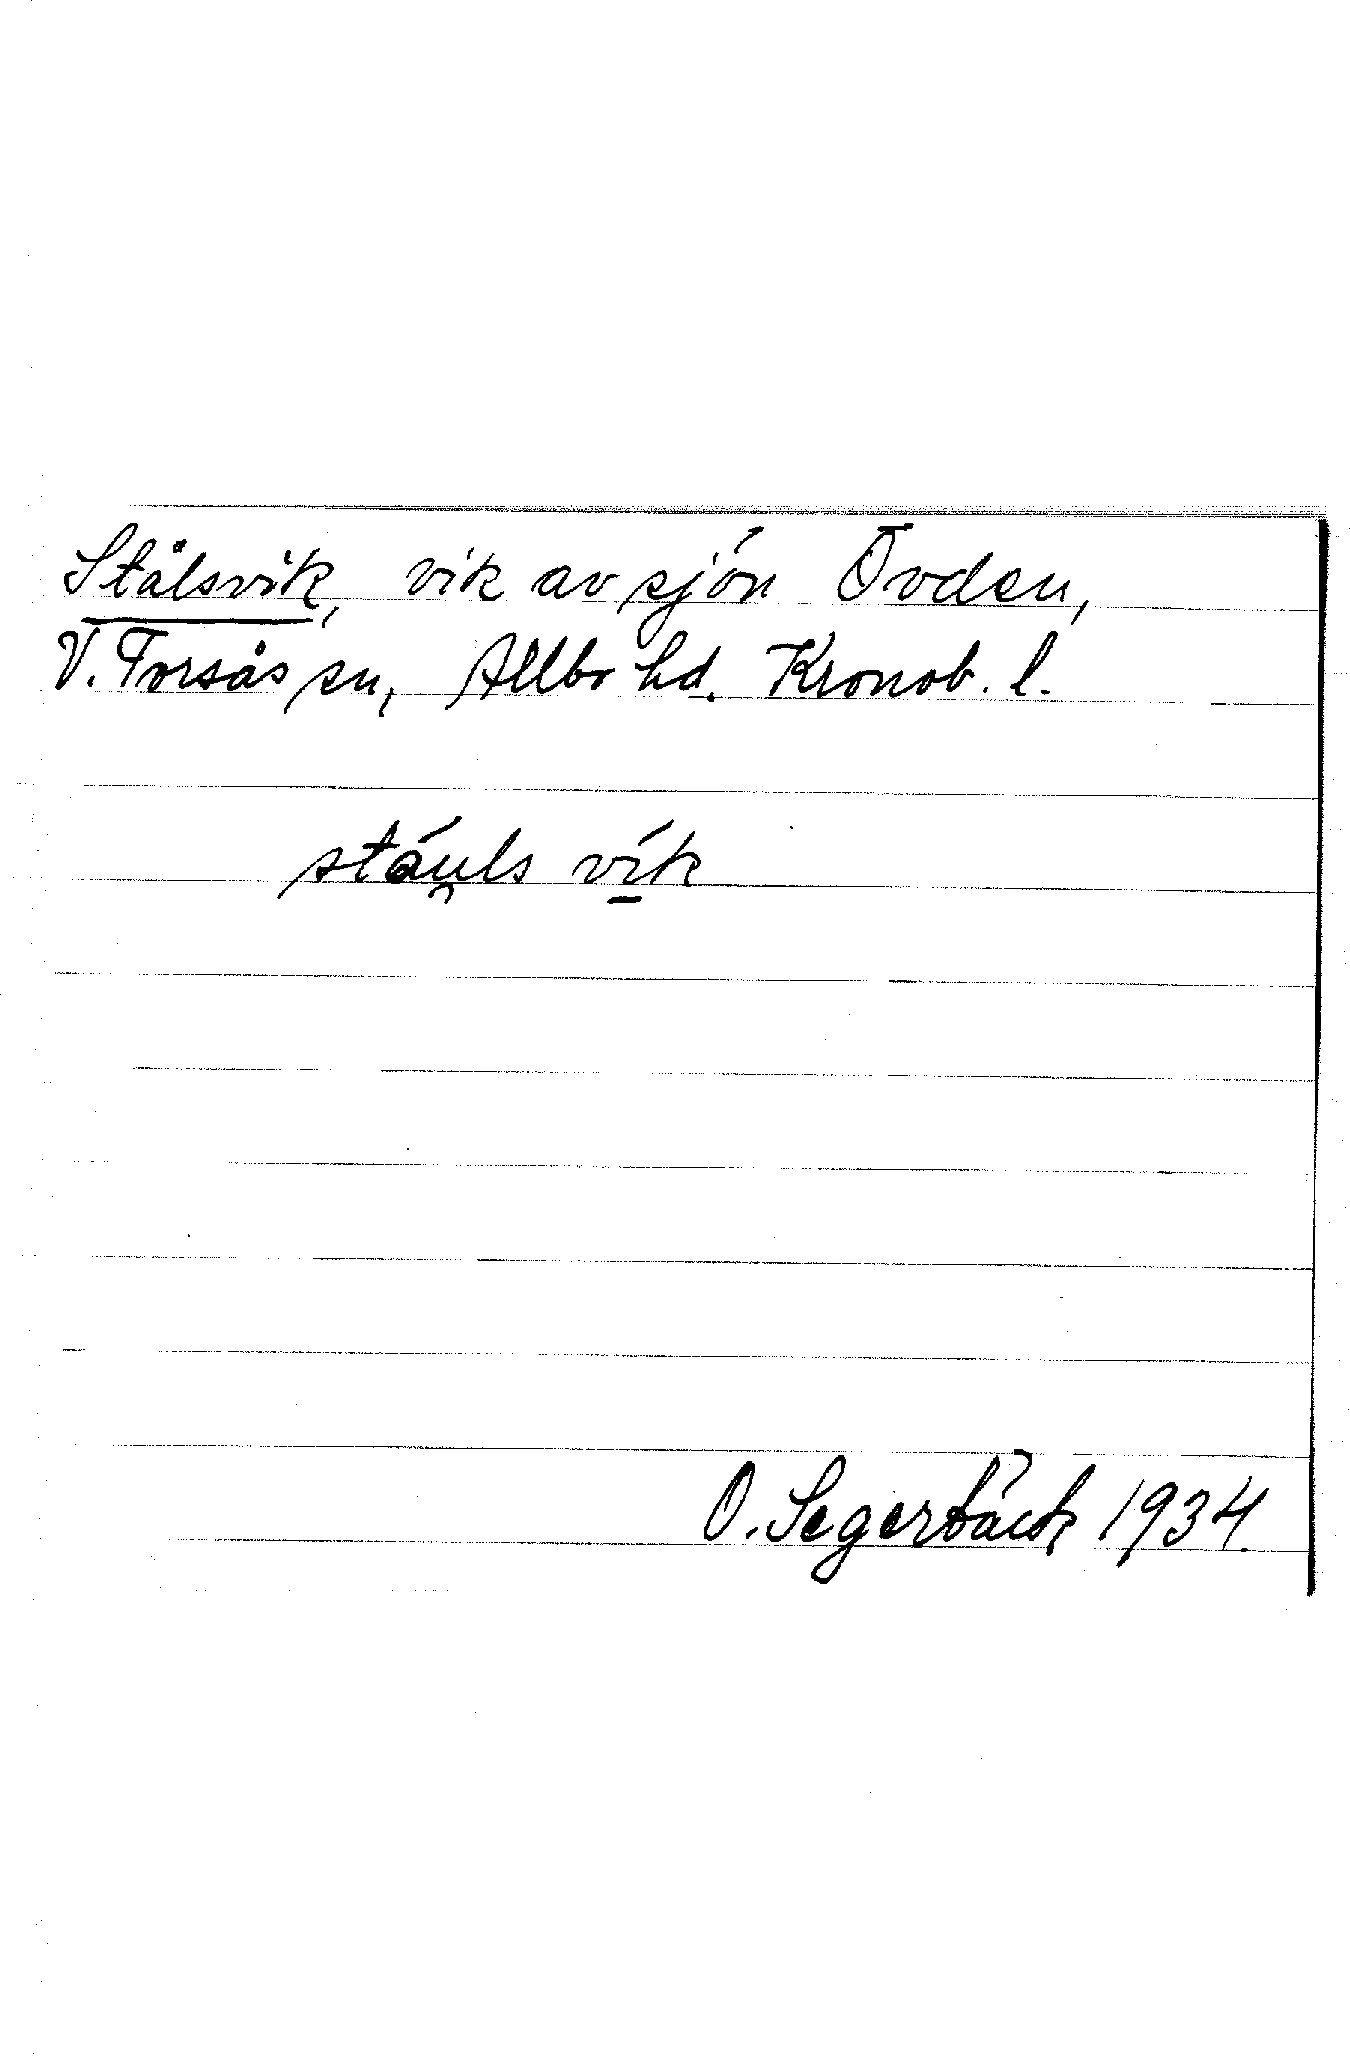 Stålsvik, vik av sjön Övden,
V. Torsås sn, Allbo hd. Kronob. l.
stáu̯ls ví̱k
O. Segerbäck 1934.